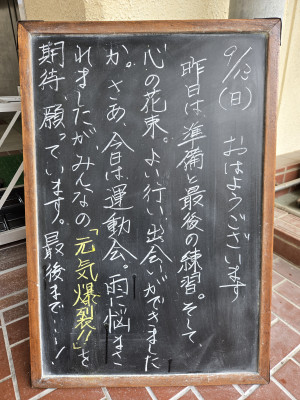 9/13(日) おはようございます
昨日は準備と最後の練習。そして、
心の花束。よい行い、出会いができました
か。さあ、今日は運動会。雨に悩まさ
れましたが、みんなの「元気爆裂!!」を
期待、願っています。最後まで…!